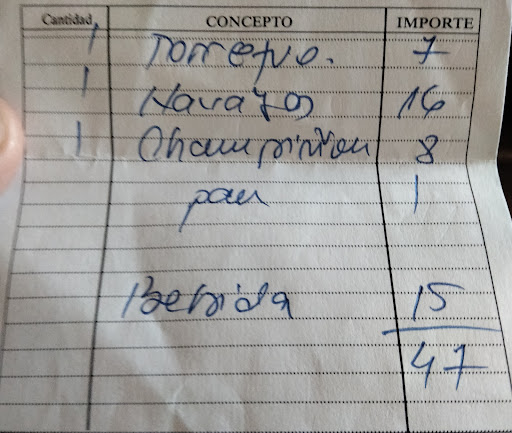 Cantidad CONCEPTO IMPORTE
1 Torrezno. 7
1 Navajas 16
1 Champiñon 8
pan 1
Bebida 15
47